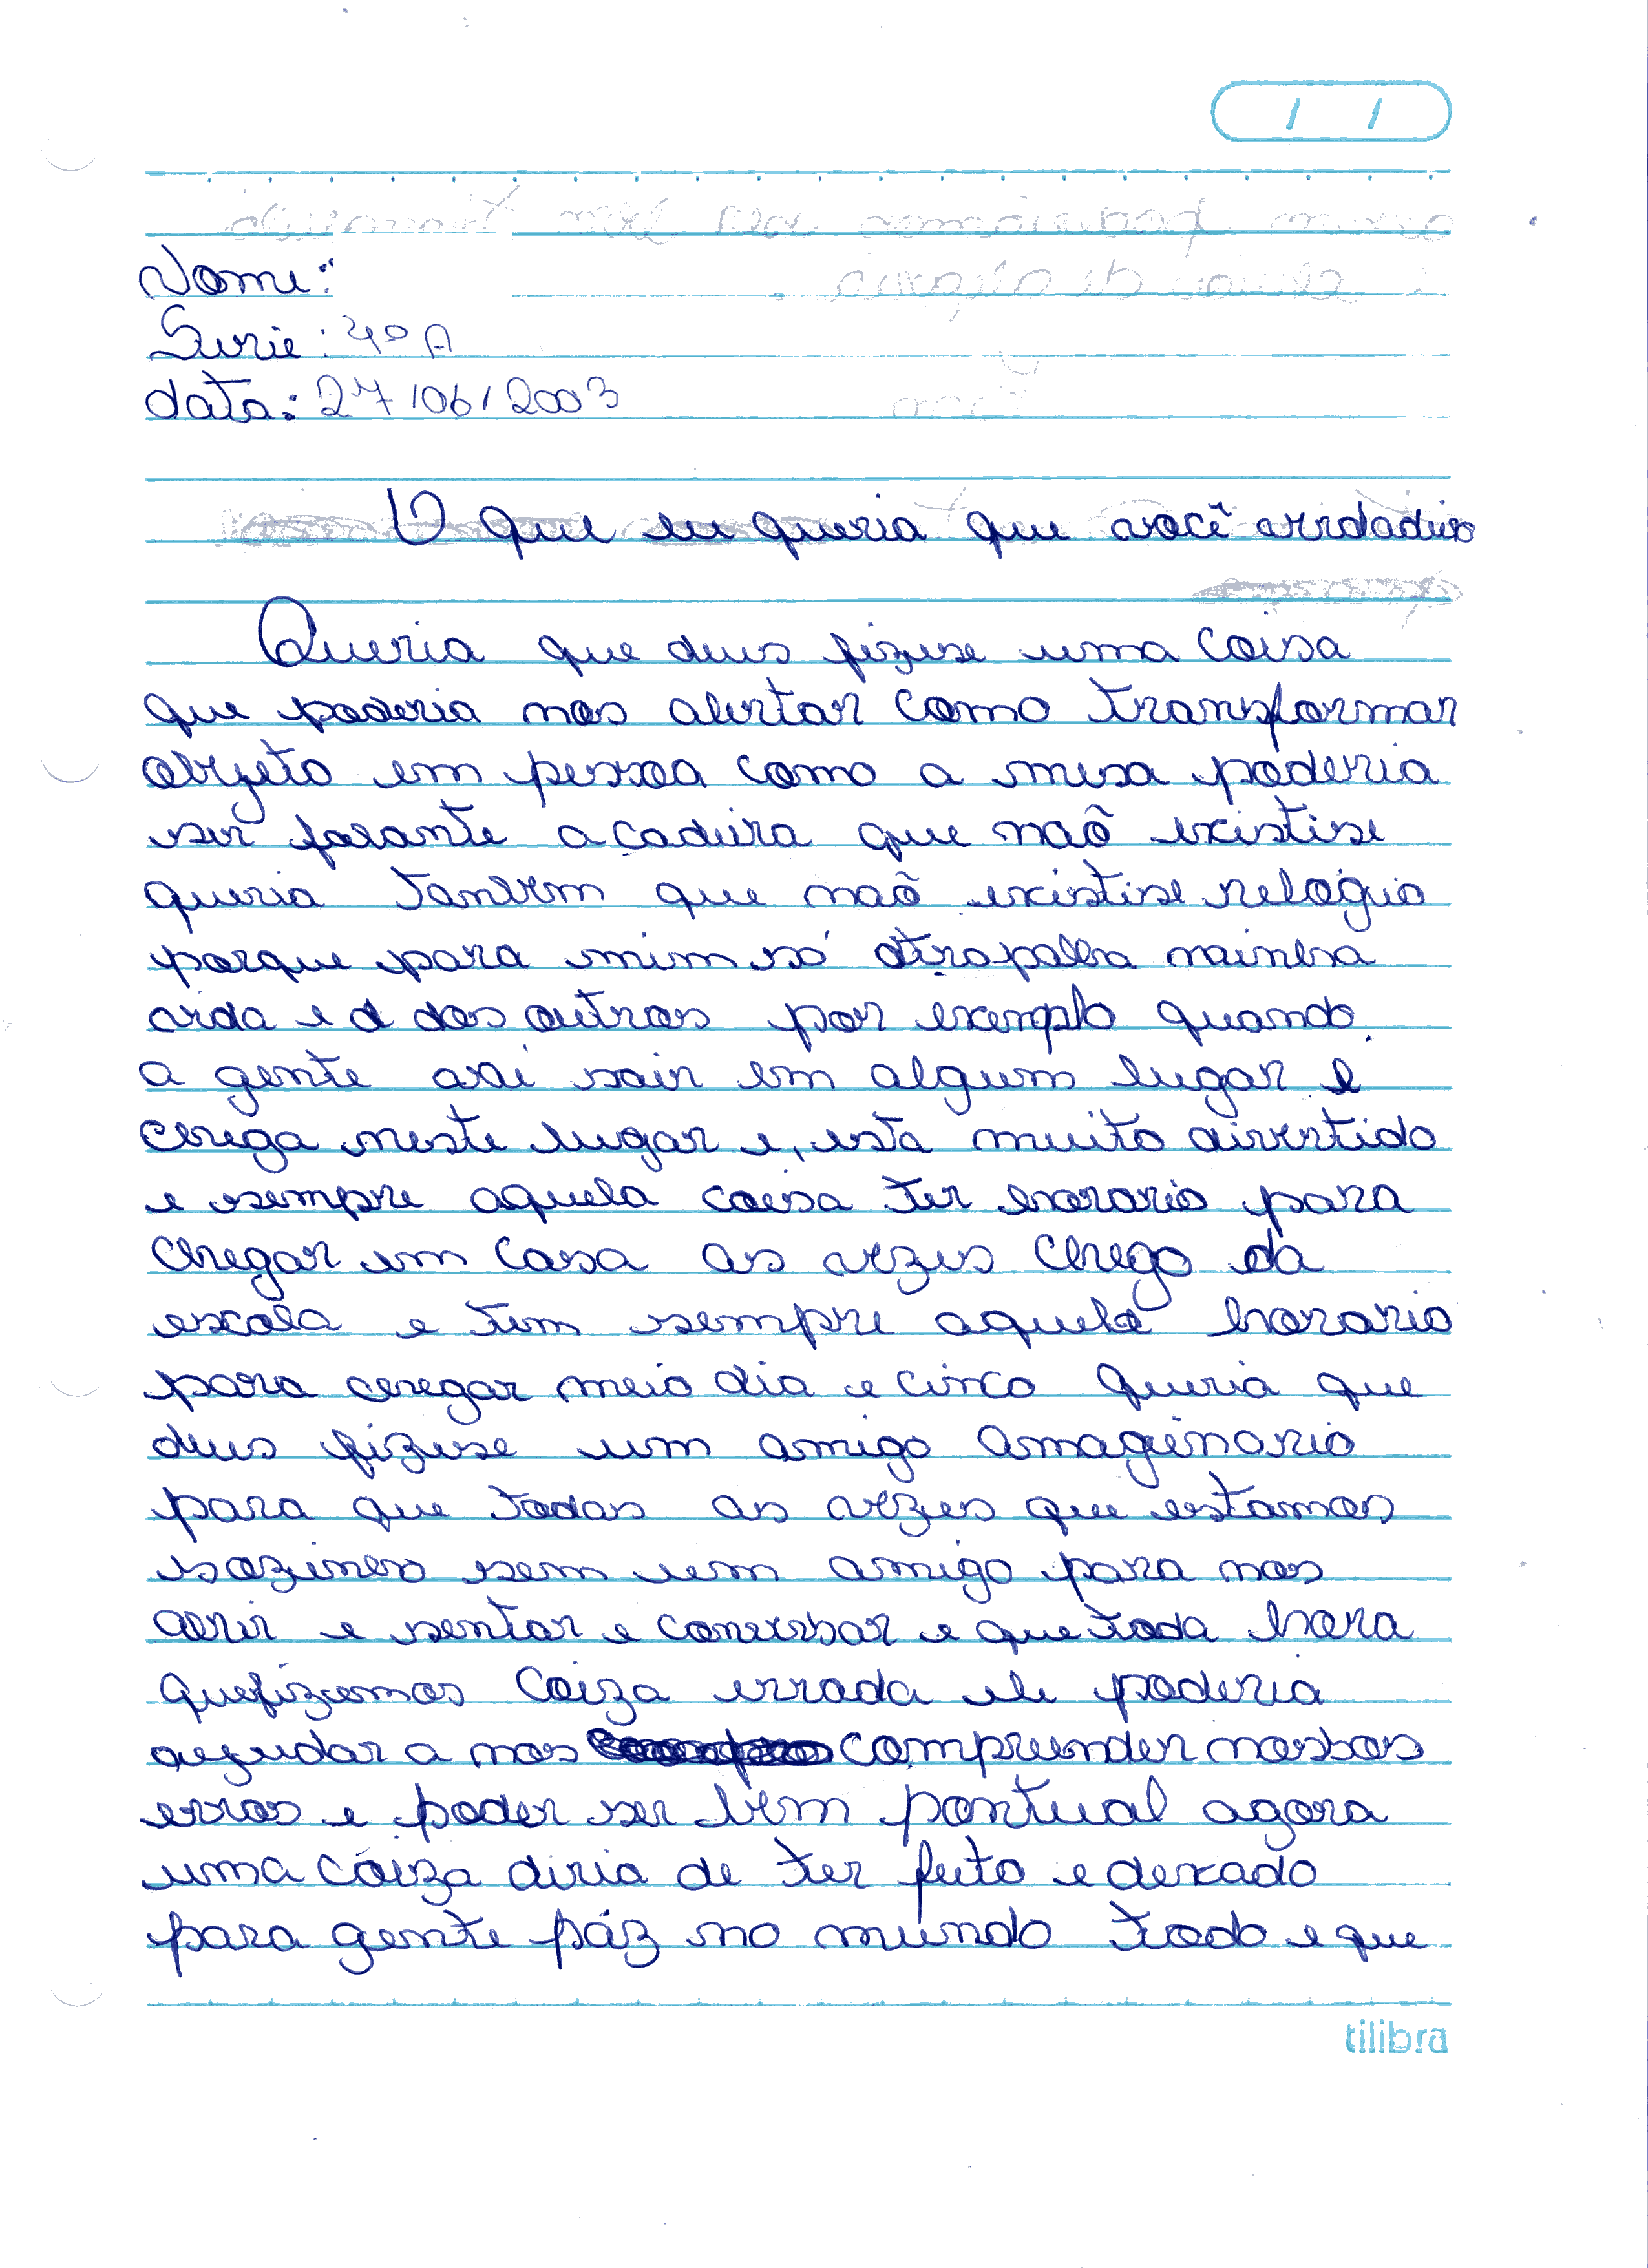 Nome:
Serie: 4º A
data: 27/06/2003
O que eu queria que você
Queria que deus fizese uma coisa
que poderia nos alertar como transformar
objeto em pessoa como a mesa poderia
ser falante a cadeira que naõ existise
queria tambem que naõ existise relogio
porque para mim só atrapalha minha
vida e a dos outros por exemplo quando
a gente vai sair em algum lugar e
chega neste lugar e, esta muito divertido
e sempre aquela coisa ter horario para
chegar em casa as vezes chego da
escola e tem sempre aquele horario
para chegar meio dia e cinco queria que
deus fizese um amigo amaginario
para que todas as vezes que estamos
sozinho sem um amigo para nos
abrir e sentar e conversar e que toda hora
que fizemos coiza errada ele poderia
agudar a nos compreender nossos
erros e poder ser bem pontual agora
uma coiza diria de ter feito e dexado
para gente páz no mundo todo e que
tilibra